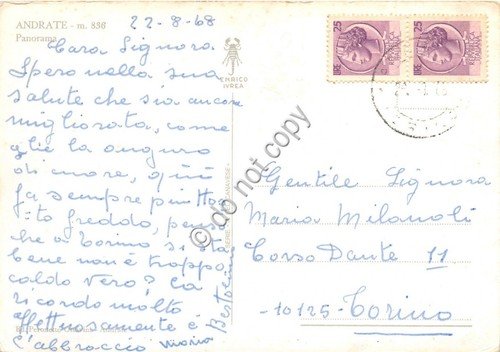 ANDRATE - m. 836
Panorama
22-8-68
Cara Signora
Spero nella sua
salute che sia ancora
migliorata, come
glie la auguro
di cuore, qui
fa sempre piuttos
to freddo, penso
che a Torino si sta
bene non è troppo
caldo vero? La
ricordo molto
affettuosamente e
l'abbraccio
Bertolino
ENRICO
IVREA
25
REPUBBLICA
ITALIANA
25
REPUBBLICA
ITALIANA
© do not copy
Gentile Signora
Maria Milanoli
Corso Dante 11
-10125- Torino